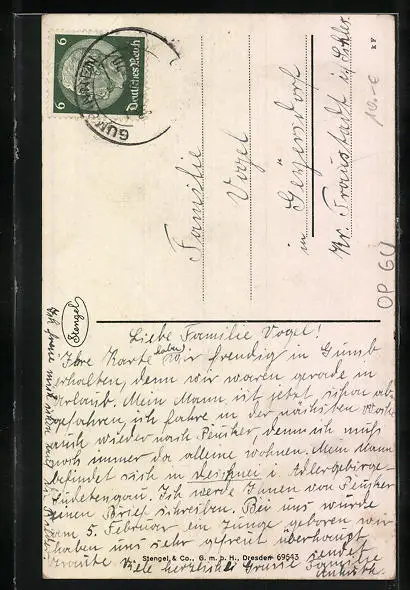 6 6
Deutsches Reich
GUMB
Familie
Vogel
in Geyersdorf
Kr. Fraustadt i/ Schles.
10.-€
OP GU
Stengel
Liebe Familie Vogel!
Ihre Karte haben wir freudig in Gumb
erhalten, denn wir waren gerade in
Urlaub. Mein Mann ist jetzt schon ab-
gefahren, ich fahre in der nächsten Woche
auch wieder nach Peusker, denn ich muß
noch immer da alleine wohnen. Mein Mann
befindet sich in i Adlergebirge-
Sudetengau. Ich werde Ihnen von Peusker
einen Brief schreiben. Bei uns wurde
am 5. Februar ein Junge geboren wir
haben uns sehr gefreut überhaupt
Viele herzliche Grüsse sendet
Familie
Stengel & Co., G. m. b. H., Dresden 69643